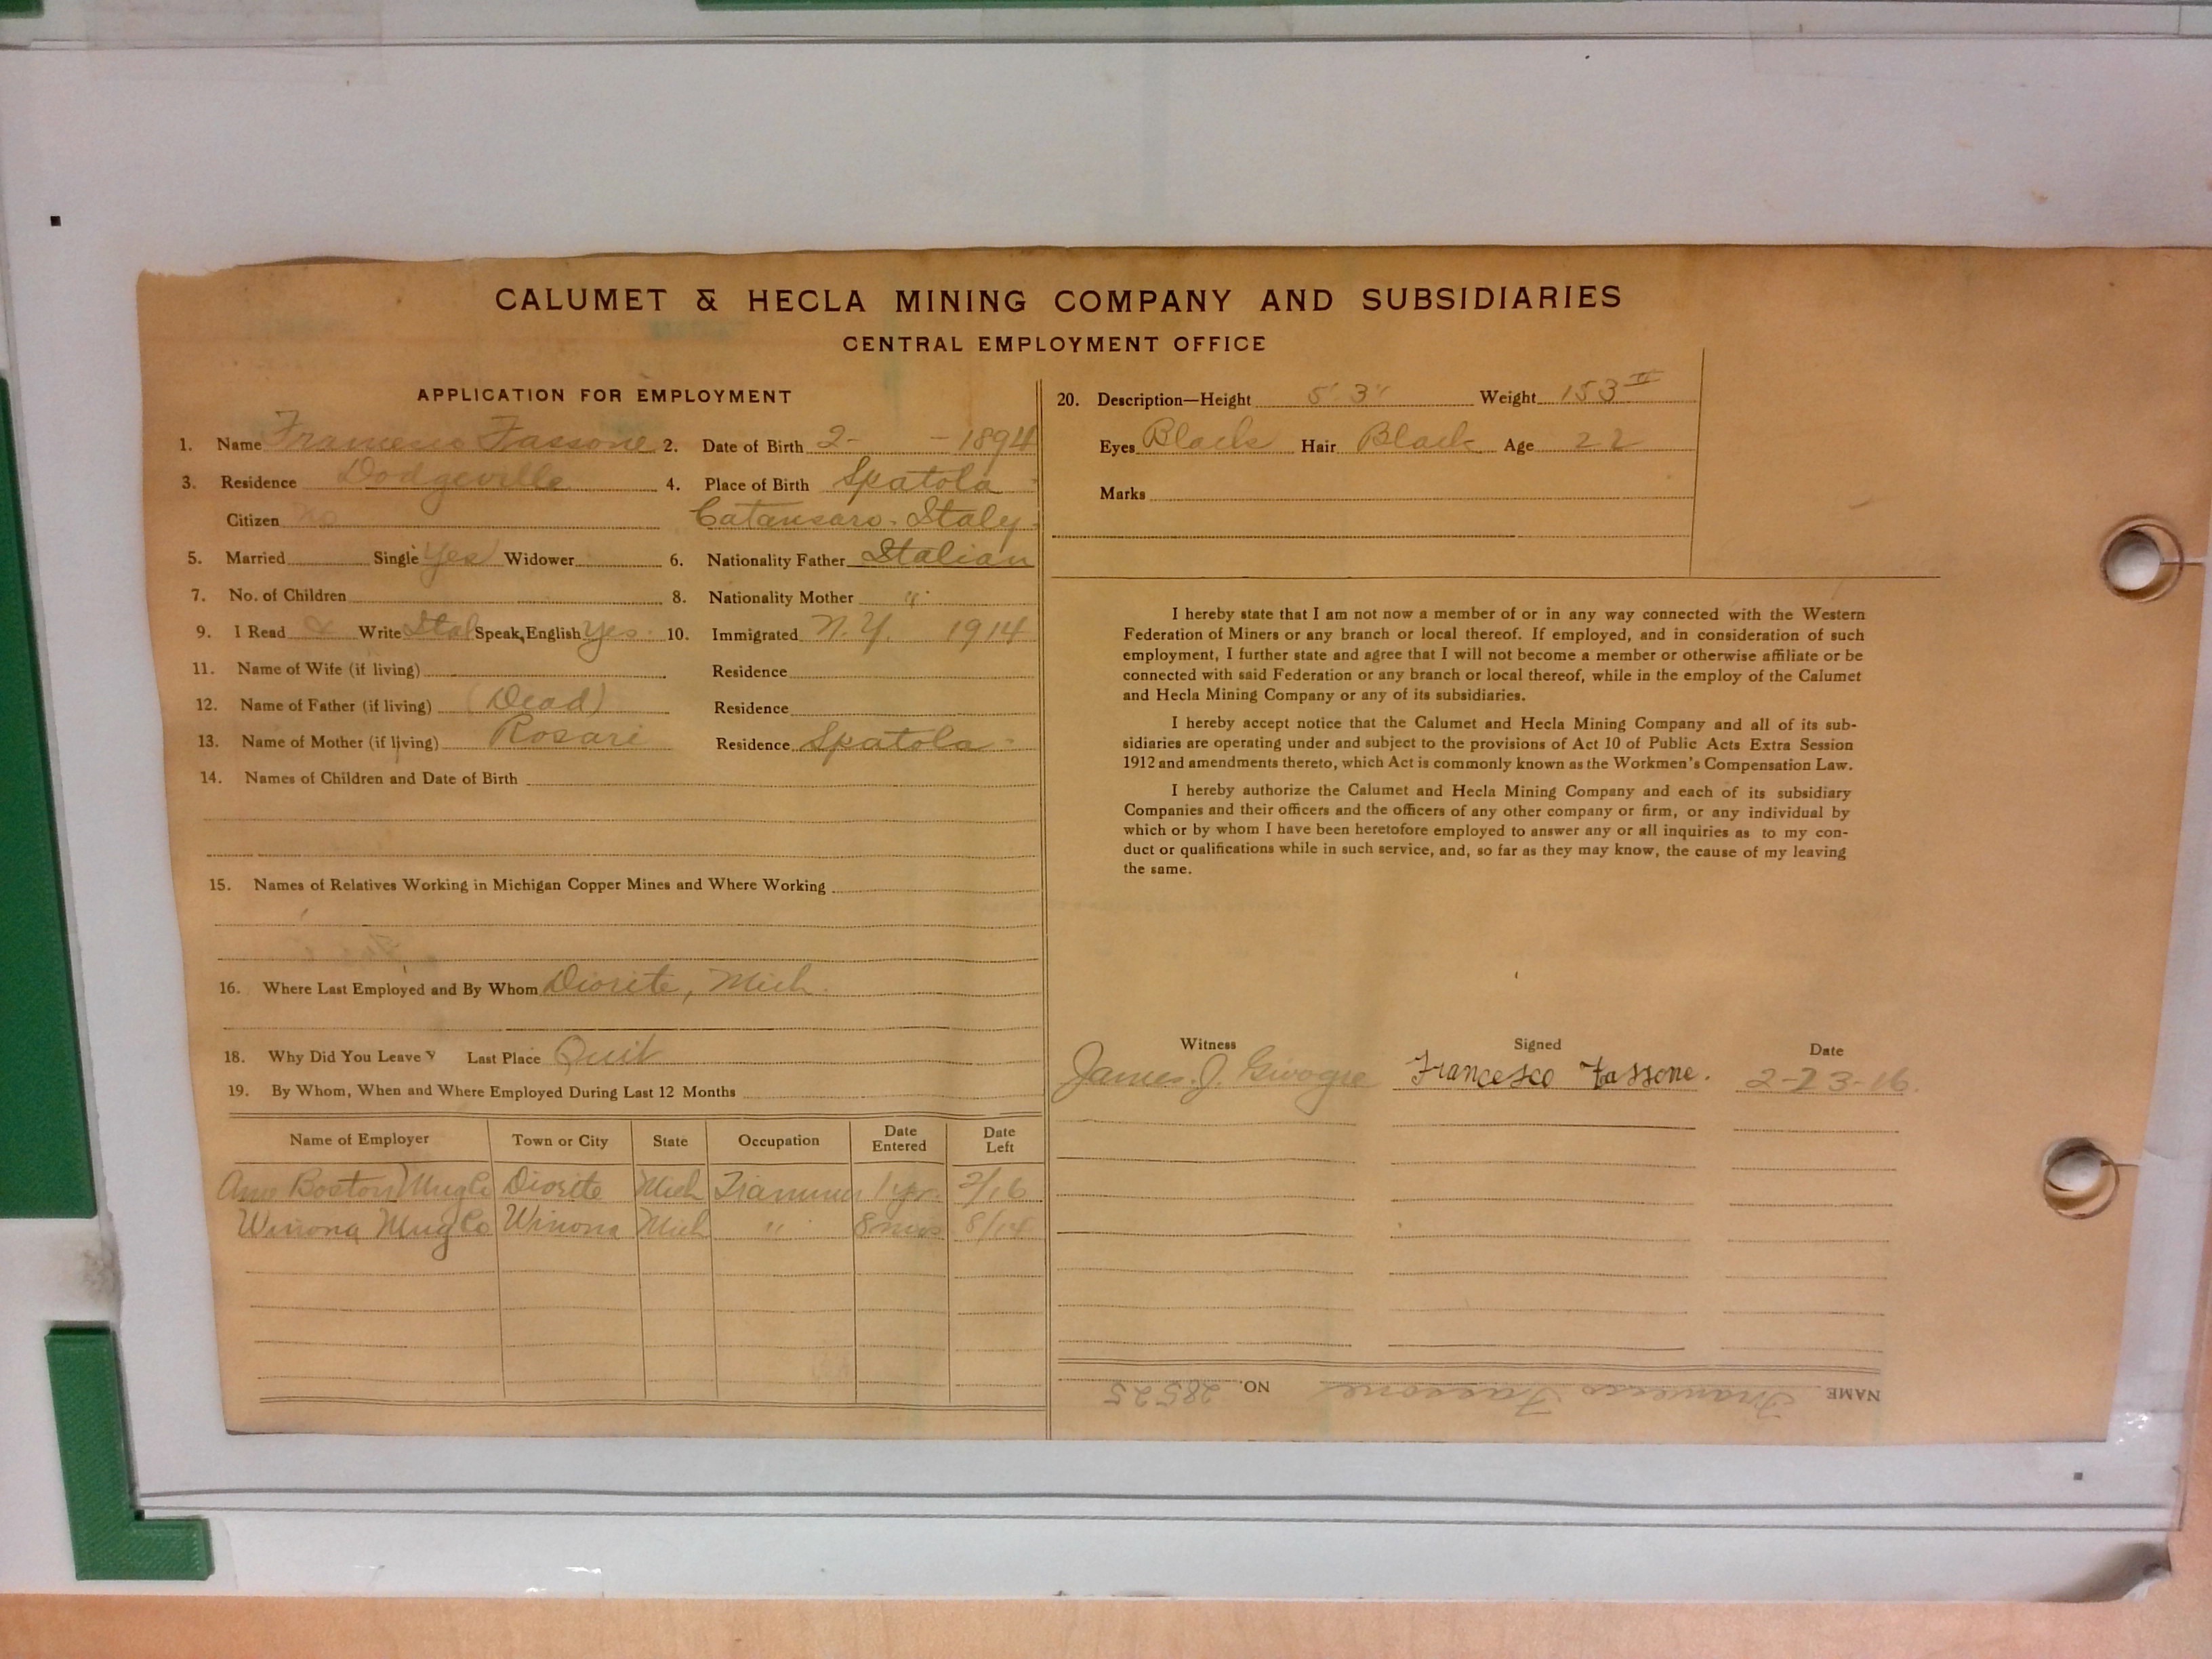 CALUMET & HECLA MINING COMPANY AND SUBSIDIARIES
CENTRAL EMPLOYMENT OFFICE
APPLICATION FOR EMPLOYMENT
1. Name Francesco Fassone 2. Date of Birth 2- -1894
3. Residence Dodgeville 4. Place of Birth Spatola
Citizen No Catansaro. Italy.
5. Married Single Yes Widower 6. Nationality Father Italian
7. No. of Children 8. Nationality Mother "
9. I Read & Write Ital Speak English Yes. 10. Immigrated N.Y. 1914
11. Name of Wife (if living) Residence
12. Name of Father (if living) (Dead) Residence
13. Name of Mother (if living) Rosari Residence Spatola
14. Names of Children and Date of Birth
15. Names of Relatives Working in Michigan Copper Mines and Where Working
16. Where Last Employed and By Whom Diorite, Mich.
18. Why Did You Leave Last Place Quit
19. By Whom, When and Where Employed During Last 12 Months
Name of Employer Town or City State Occupation Date Entered Date Left
Am Boston Mng Co Diorite Mich Trammer 1 yr. 2/16
Winona Mng Co Winona Mich " 8 mos 8/14
20. Description—Height 5' 3" Weight 153
Eyes Black Hair Black Age 22
Marks
I hereby state that I am not now a member of or in any way connected with the Western
Federation of Miners or any branch or local thereof. If employed, and in consideration of such
employment, I further state and agree that I will not become a member or otherwise affiliate or be
connected with said Federation or any branch or local thereof, while in the employ of the Calumet
and Hecla Mining Company or any of its subsidiaries.
I hereby accept notice that the Calumet and Hecla Mining Company and all of its sub-
sidiaries are operating under and subject to the provisions of Act 10 of Public Acts Extra Session
1912 and amendments thereto, which Act is commonly known as the Workmen's Compensation Law.
I hereby authorize the Calumet and Hecla Mining Company and each of its subsidiary
Companies and their officers and the officers of any other company or firm, or any individual by
which or by whom I have been heretofore employed to answer any or all inquiries as to my con-
duct or qualifications while in such service, and, so far as they may know, the cause of my leaving
the same.
Witness Signed Date
James. J. Francesco Fassone. 2-23-16.
NAME Francesco Fassone NO. 28525